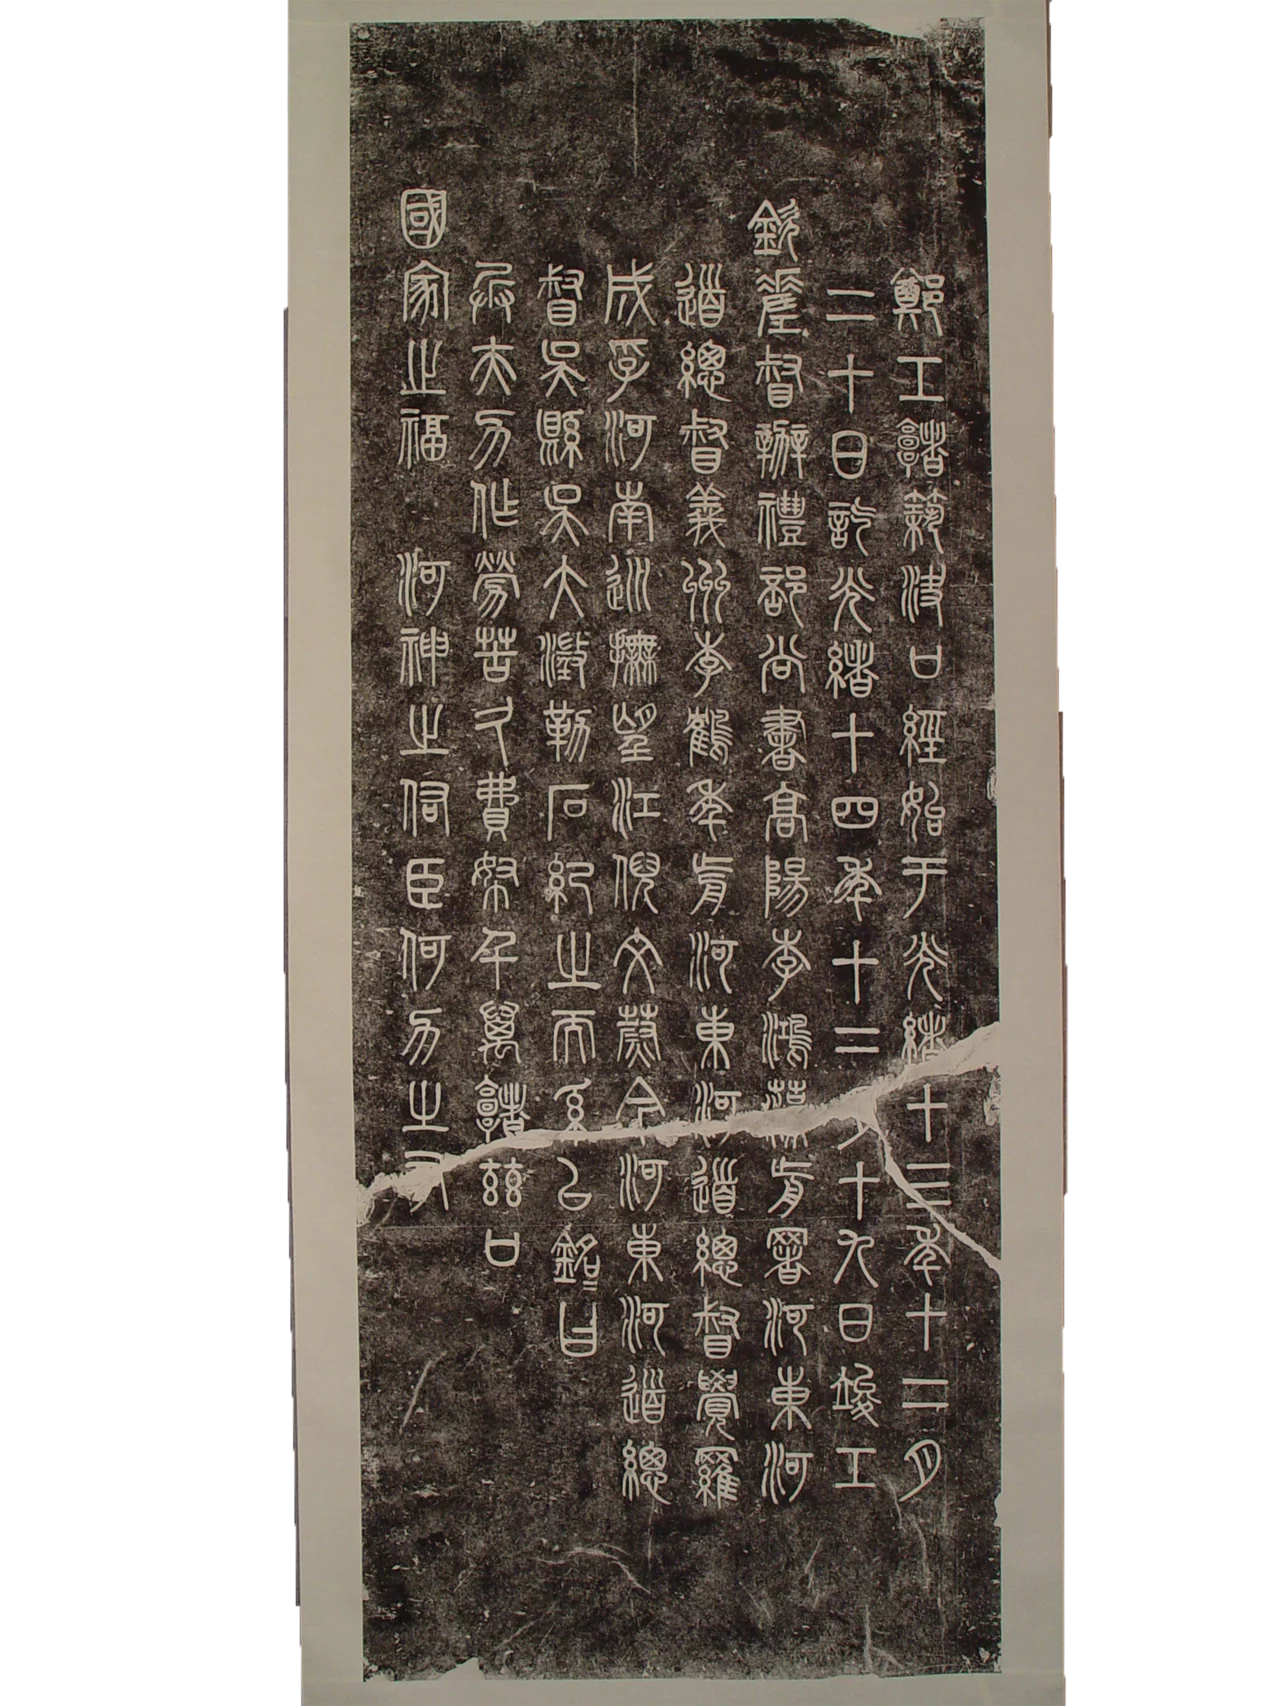 鄭工堵築決口經始于光緒十三年十二月
二十日訖光緒十四年十二月十九日竣工
欽差督辦禮部尚書高陽李鴻藻前署河東河
道總督義州李鶴年前河東河道總督覺羅
成孚河南巡撫望江倪文蔚今河東河道總
督吳縣吳大澂勒石紀之而系以銘銘曰
兵夫力作勞苦久費帑千萬堵茲口
國家之福 河神之佑臣何力之有